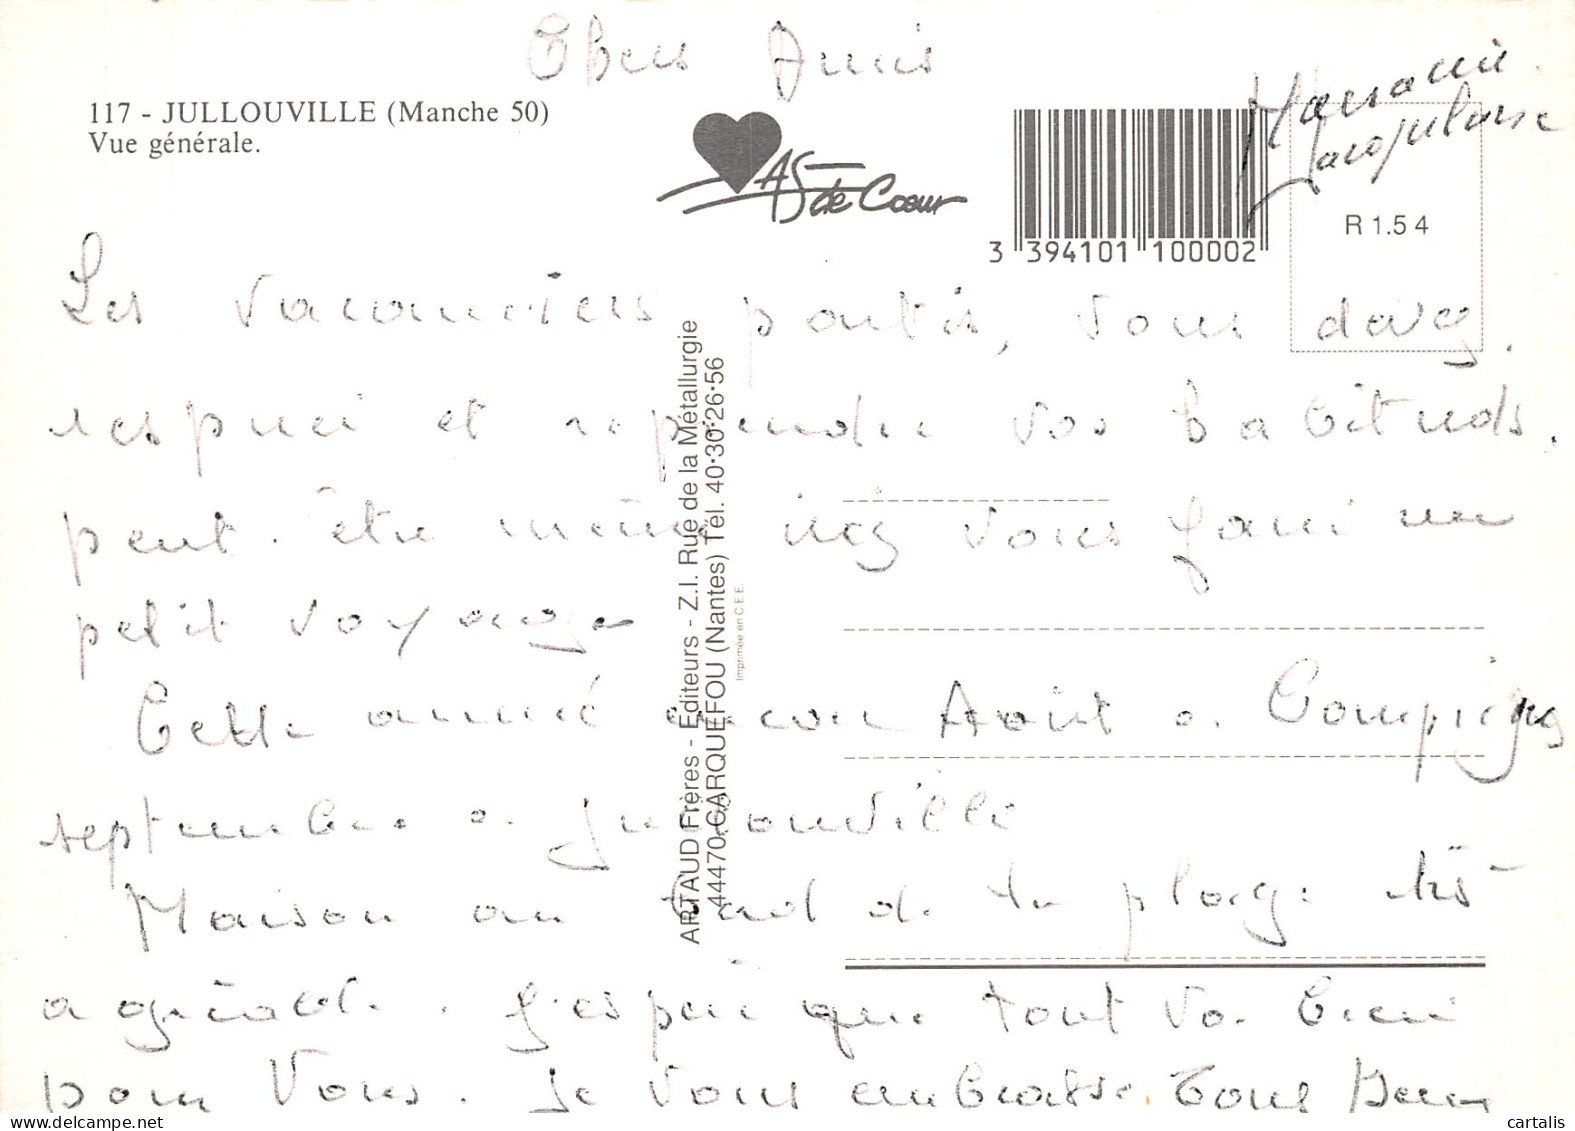 Chers Amis
117 - JULLOUVILLE (Manche 50)
Vue générale.
AS de Coeur
3 394101 100002
R 1.54
Jacqueline
Les vacanciers partis, vous devez
respirer et reprendre vos habitudes.
peut-être même irez vous faire un
petit voyage
Cette année encore Août à Compiègne
septembre à Jullouville
Maison au bord de la plage très
agréable. J'espère que tout va bien
pour Vous. Je vous embrasse Tous Deux
ARTAUD Frères - Editeurs - Z.I. Rue de la Métallurgie
44470 CARQUEFOU (Nantes) Tél. 40·30·26·56
Imprimée en C.E.E.
cartalis